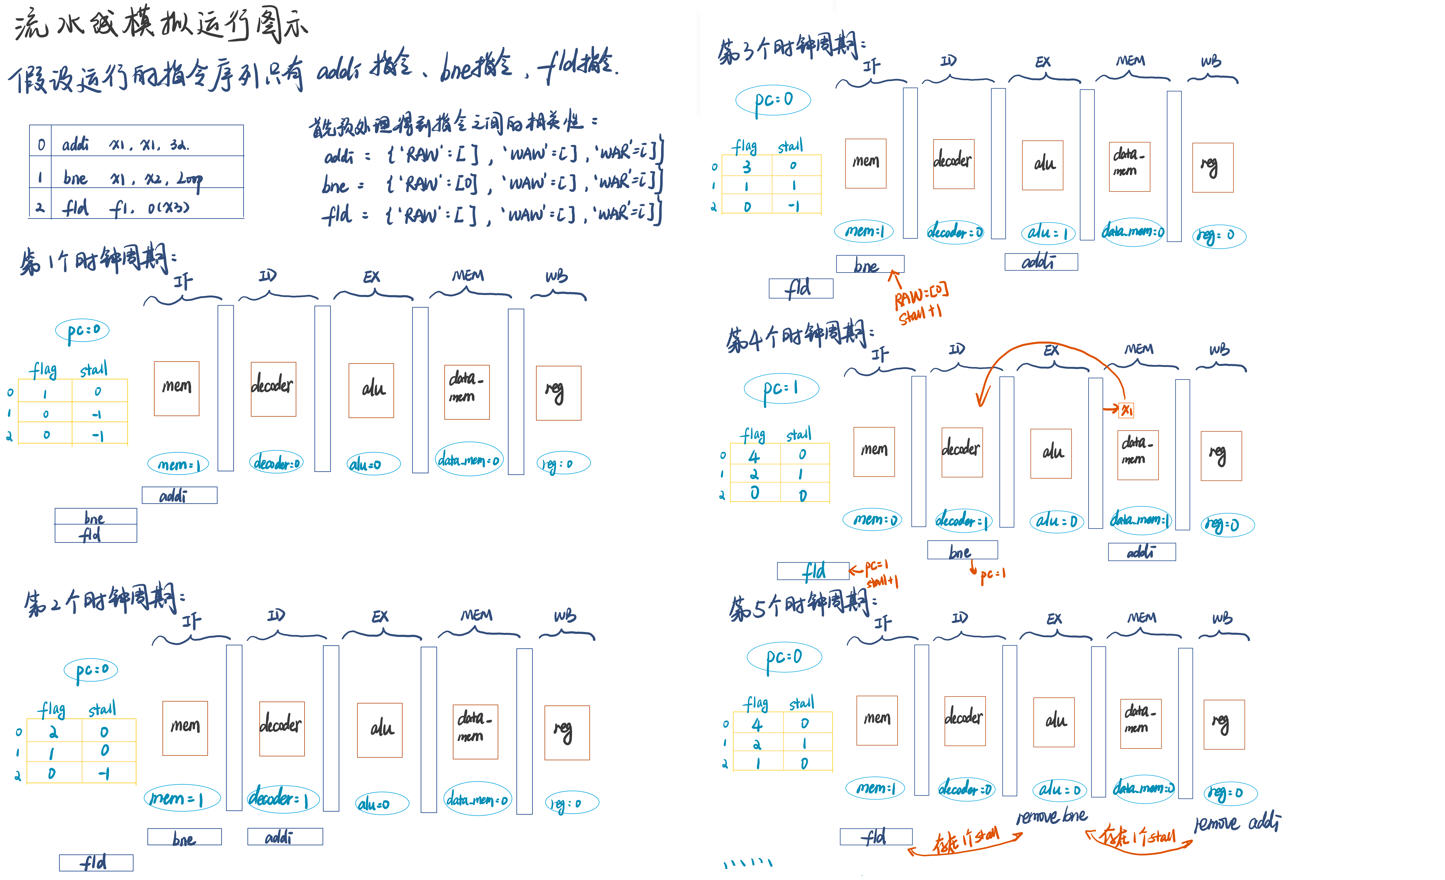 流水线模拟运行图示
假设运行的指令序列只有 addi 指令、bne指令，fld指令.
0 addi x1, x1, 32.
1 bne x1, x2, Loop
2 fld f1, 0(x3)
首先预处理得到指令之间的相关性：
addi = {'RAW'=[], 'WAW'=[], 'WAR'=[]}
bne = {'RAW'=[0], 'WAW'=[], 'WAR'=[]}
fld = {'RAW'=[], 'WAW'=[], 'WAR'=[]}
第1个时钟周期：
IF ID EX MEM WB
pc=0
flag stall
0 1 0
1 0 -1
2 0 -1
mem decoder alu data_mem reg
mem=1 decoder=0 alu=0 data_mem=0 reg=0
addi
bne
fld
第2个时钟周期：
IF ID EX MEM WB
pc=0
flag stall
0 2 0
1 1 0
2 0 -1
mem decoder alu data_mem reg
mem=1 decoder=1 alu=0 data_mem=0 reg=0
bne addi
fld
第3个时钟周期：
IF ID EX MEM WB
pc=0
flag stall
0 3 0
1 1 1
2 0 -1
mem decoder alu data_mem reg
mem=1 decoder=0 alu=1 data_mem=0 reg=0
bne addi
fld
RAW=[0]
stall+1
第4个时钟周期：
IF ID EX MEM WB
pc=1
x1
flag stall
0 4 0
1 2 1
2 0 0
mem decoder alu data_mem reg
mem=0 decoder=1 alu=0 data_mem=1 reg=0
bne addi
fld pc=1
stall+1
pc=1
第5个时钟周期：
IF ID EX MEM WB
pc=0
flag stall
0 4 0
1 2 1
2 1 0
mem decoder alu data_mem reg
mem=1 decoder=0 alu=0 data_mem=0 reg=0
remove bne remove addi
fld 存在1个stall 存在1个stall